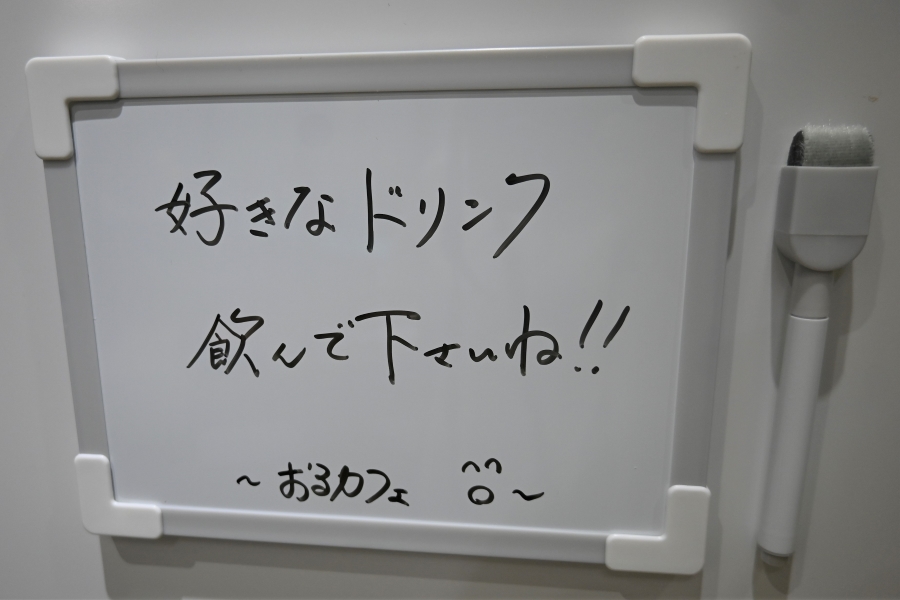 好きなドリンク
飲んで下さいね!!
~おるカフェ ^^o~